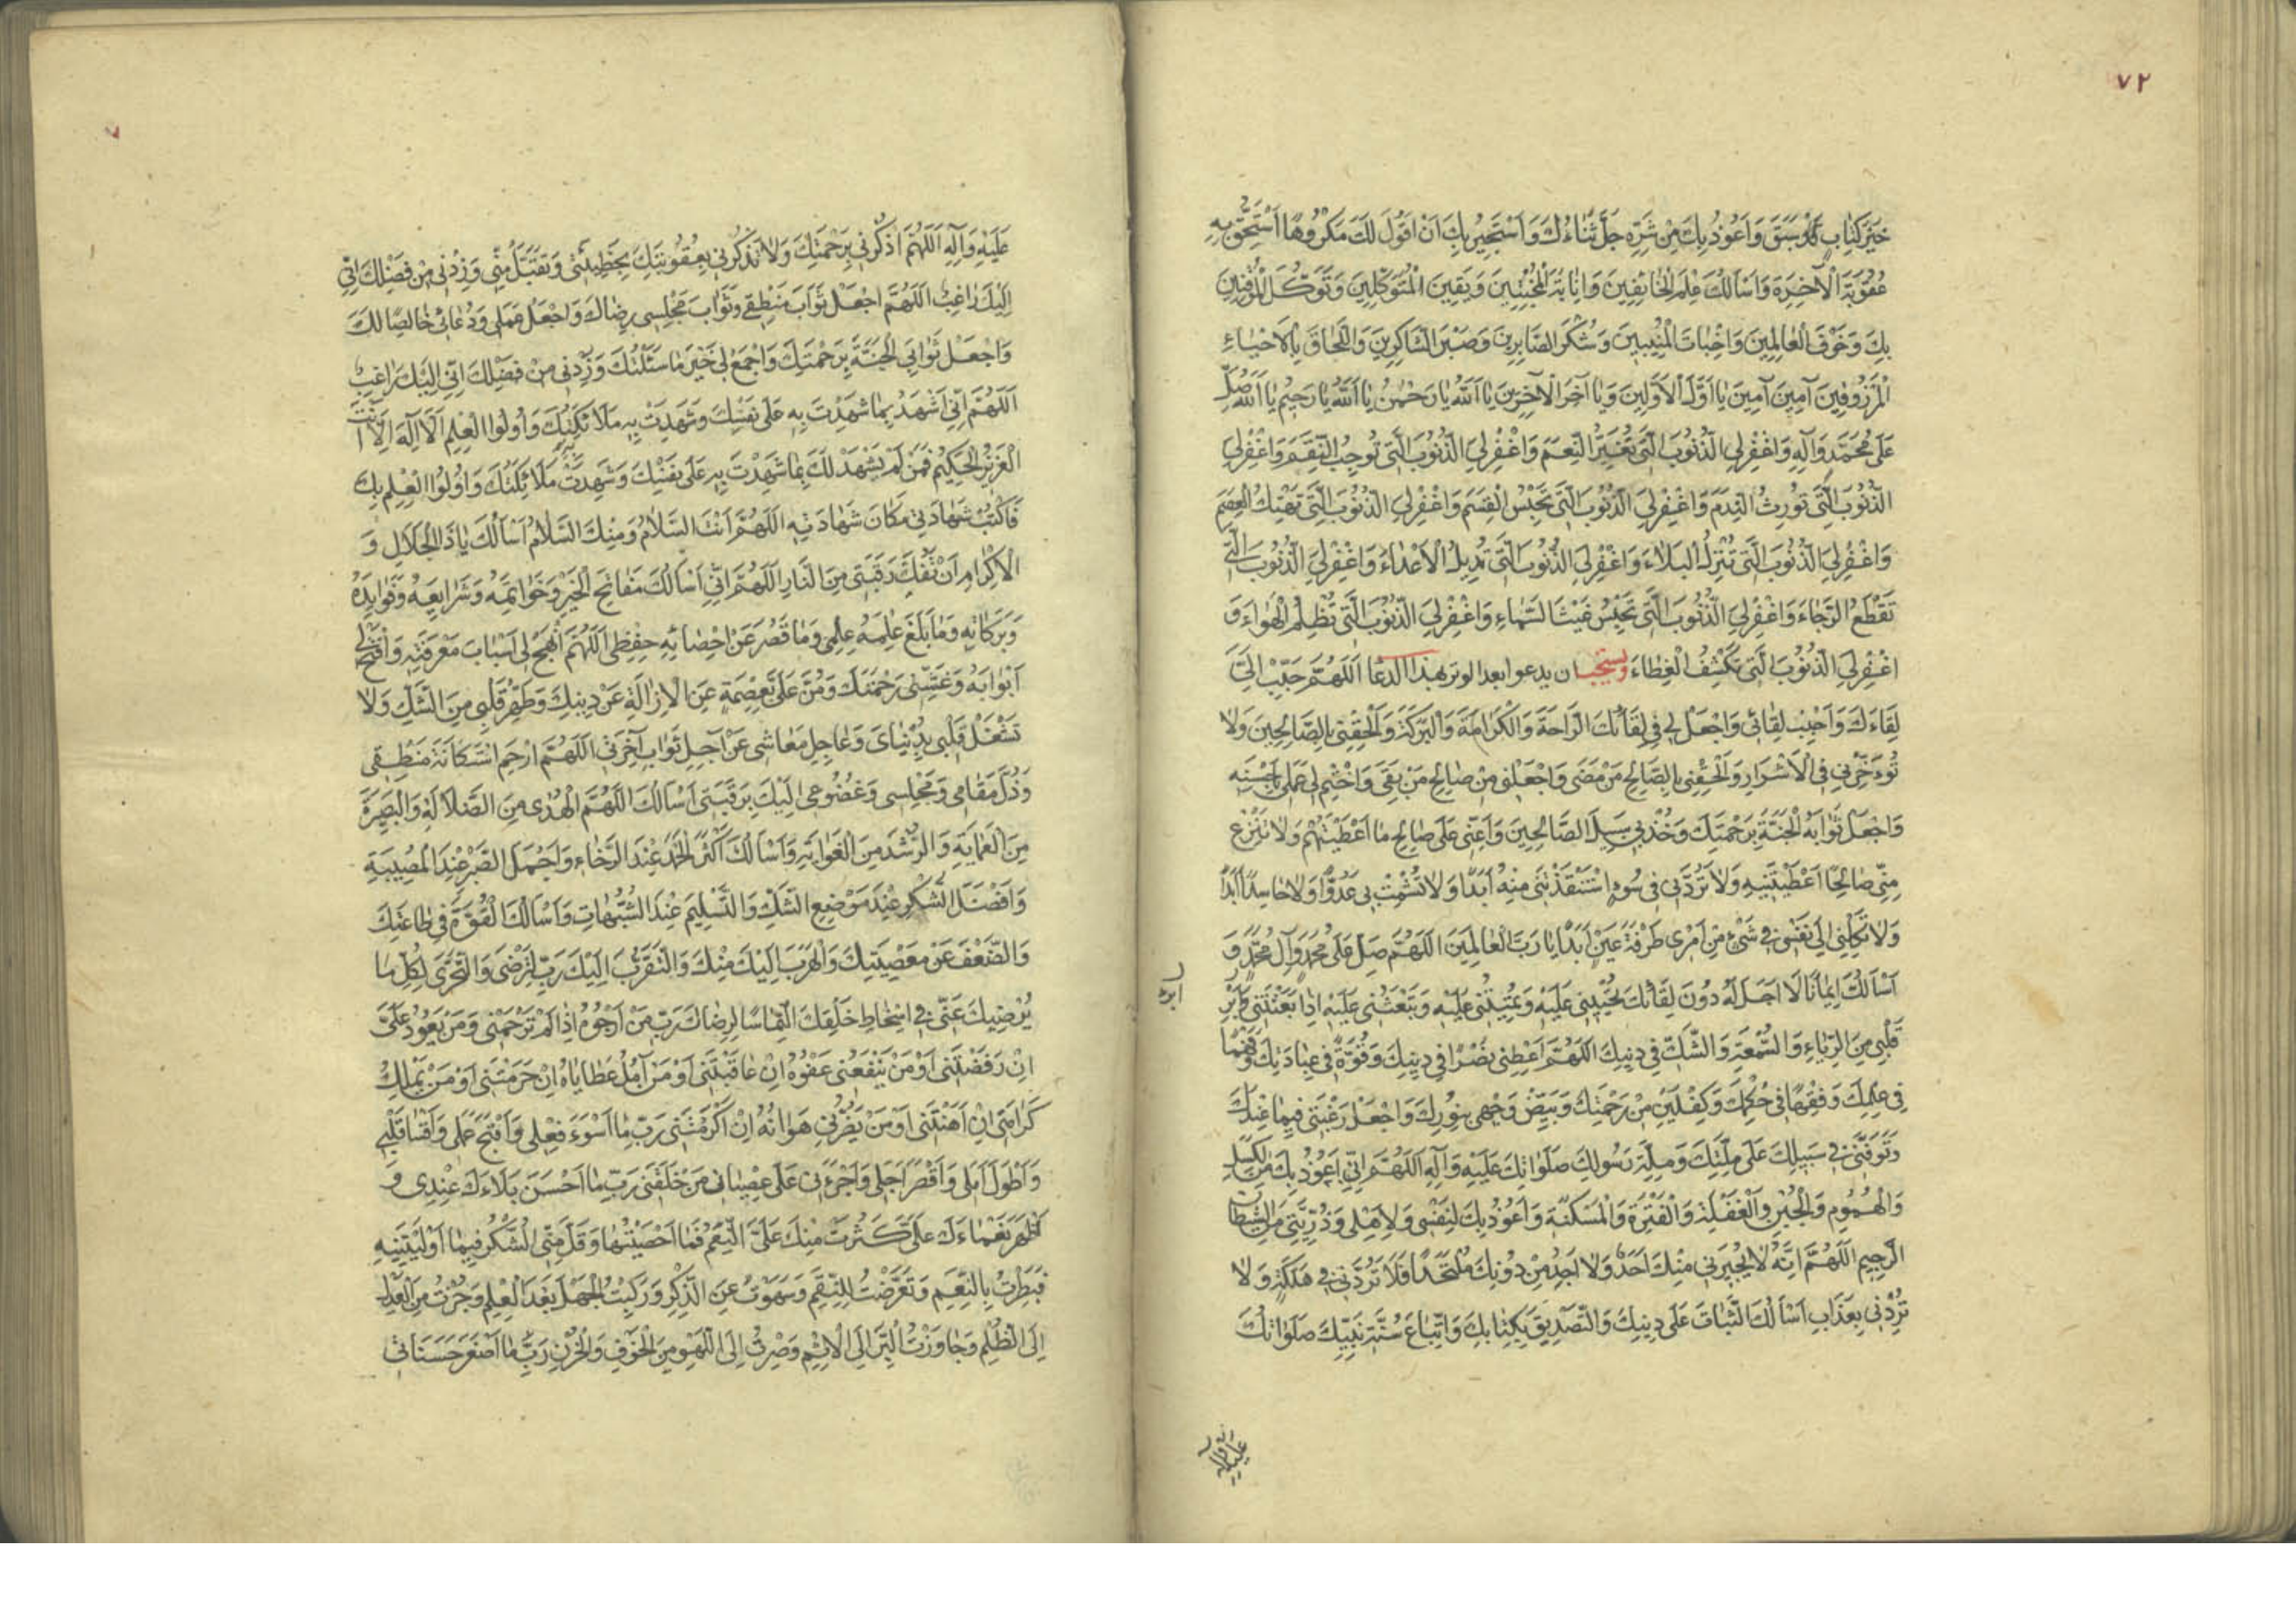 ٧٢
خَيْرَ كِتَابٍ قَدْ سَبَقَ وَاَعُوذُ بِكَ مِنْ شَرِّهِ جَلَّ ثَنَاءُكَ وَاَسْتَجِيرُ بِكَ اَنْ اَقُولَ لَكَ مَكْرُوهًا اَسْتَحِقُّ بِهِ
عُقُوبَةَ الْآخِرَةِ وَاَسْاَلُكَ عِلْمَ الْخَائِفِينَ وَاِنَابَةَ الْمُخْبِتِينَ وَيَقِينَ الْمُتَوَكِّلِينَ وَتَوَكُّلَ الْمُوقِنِينَ
بِكَ وَخَوْفَ الْعَالِمِينَ وَاِخْبَاتَ الْمُنِيبِينَ وَشُكْرَ الصَّابِرِينَ وَصَبْرَ الشَّاكِرِينَ وَاللَّحَاقَ بِالْاَحْيَاءِ
الْمَرْزُوقِينَ آمِينَ آمِينَ يَا اَوَّلَ الْاَوَّلِينَ وَيَا آخِرَ الْآخِرِينَ يَا اَللهُ يَا رَحْمٰنُ يَا اَللهُ يَا رَحِيمُ يَا اَللهُ صَلِّ
عَلَى مُحَمَّدٍ وَآلِهِ وَاغْفِرْ لِيَ الذُّنُوبَ الَّتِي تُغَيِّرُ النِّعَمَ وَاغْفِرْ لِيَ الذُّنُوبَ الَّتِي تُوجِبُ النِّقَمَ وَاغْفِرْ لِيَ
الذُّنُوبَ الَّتِي تُورِثُ النَّدَمَ وَاغْفِرْ لِيَ الذُّنُوبَ الَّتِي تَحْبِسُ الْقِسَمَ وَاغْفِرْ لِيَ الذُّنُوبَ الَّتِي تَهْتِكُ الْعِصَمَ
وَاغْفِرْ لِيَ الذُّنُوبَ الَّتِي تُنْزِلُ الْبَلَاءَ وَاغْفِرْ لِيَ الذُّنُوبَ الَّتِي تُدِيلُ الْاَعْدَاءَ وَاغْفِرْ لِيَ الذُّنُوبَ الَّتِي
تَقْطَعُ الرَّجَاءَ وَاغْفِرْ لِيَ الذُّنُوبَ الَّتِي تَحْبِسُ غَيْثَ السَّمَاءِ وَاغْفِرْ لِيَ الذُّنُوبَ الَّتِي تُظْلِمُ الْهَوَاءَ وَ
اغْفِرْ لِيَ الذُّنُوبَ الَّتِي تَكْشِفُ الْغِطَاءَ ويستحبّ ان يدعوا بعد الوتر بهذا الدعا اَللّٰهُمَّ حَبِّبْ اِلَيَّ
لِقَاءَكَ وَاَحْبِبْ لِقَائِي وَاجْعَلْ لِي فِي لِقَائِكَ الرَّاحَةَ وَالْكَرَامَةَ وَالْبَرَكَةَ وَاَلْحِقْنِي بِالصَّالِحِينَ وَلَا
تُؤَخِّرْنِي فِي الْاَشْرَارِ وَاَلْحِقْنِي بِالصَّالِحِ مَنْ مَضَى وَاجْعَلْنِي مِنْ صَالِحِ مَنْ بَقِيَ وَاخْتِمْ لِي عَمَلِي بِاَحْسَنِهِ
وَاجْعَلْ ثَوَابَهُ الْجَنَّةَ بِرَحْمَتِكَ وَخُذْ بِي سَبِيلَ الصَّالِحِينَ وَاَعِنِّي عَلَى صَالِحِ مَا اَعْطَيْتَهُمْ وَلَا تَنْزِعْ
مِنِّي صَالِحًا اَعْطَيْتَنِيهِ وَلَا تَرُدَّنِي فِي سُوءٍ اسْتَنْقَذْتَنِي مِنْهُ اَبَدًا وَلَا تُشْمِتْ بِي عَدُوًّا وَلَا حَاسِدًا اَبَدًا
وَلَا تَكِلْنِي اِلَى نَفْسِي فِي شَيْءٍ مِنْ اَمْرِي طَرْفَةَ عَيْنٍ اَبَدًا يَا رَبَّ الْعَالَمِينَ اَللّٰهُمَّ صَلِّ عَلَى مُحَمَّدٍ وَآلِ مُحَمَّدٍ وَ
اَسْاَلُكَ اِيمَانًا لَا اَجَلَ لَهُ دُونَ لِقَائِكَ تُحْيِينِي عَلَيْهِ وَتُمِيتُنِي عَلَيْهِ وَتَبْعَثُنِي عَلَيْهِ اِذَا بَعَثْتَنِي
قَلْبِي مِنَ الرِّيَاءِ وَالسُّمْعَةِ وَالشَّكِّ فِي دِينِكَ اَللّٰهُمَّ اَعْطِنِي نَصْرًا فِي دِينِكَ وَقُوَّةً فِي عِبَادَتِكَ وَفَهْمًا
فِي عِلْمِكَ وَفِقْهًا فِي حُكْمِكَ وَكِفْلَيْنِ مِنْ رَحْمَتِكَ وَبَيِّضْ وَجْهِي بِنُورِكَ وَاجْعَلْ رَغْبَتِي فِيمَا عِنْدَكَ
وَتَوَفَّنِي فِي سَبِيلِكَ عَلَى مِلَّتِكَ وَمِلَّةِ رَسُولِكَ صَلَوَاتُكَ عَلَيْهِ وَآلِهِ اَللّٰهُمَّ اِنِّي اَعُوذُ بِكَ مِنَ الْكَسَلِ
وَالْهُمُومِ وَالْجُبْنِ وَالْغَفْلَةِ وَالْفَتْرَةِ وَالْمَسْكَنَةِ وَاَعُوذُ بِكَ لِنَفْسِي وَلِاَهْلِي وَذُرِّيَّتِي مِنَ الشَّيْطَانِ
الرَّجِيمِ اَللّٰهُمَّ اِنَّهُ لَا يُجِيرُنِي مِنْكَ اَحَدٌ وَلَا اَجِدُ مِنْ دُونِكَ مُلْتَحَدًا فَلَا تَرُدَّنِي فِي هَلَكَةٍ وَلَا
تَرُدَّنِي بِعَذَابٍ اَسْاَلُكَ الثَّبَاتَ عَلَى دِينِكَ وَالتَّصْدِيقَ بِكِتَابِكَ وَاتِّبَاعَ سُنَّةِ نَبِيِّكَ صَلَوَاتُكَ
عليه وآله
عَلَيْهِ وَآلِهِ اَللّٰهُمَّ اذْكُرْنِي بِرَحْمَتِكَ وَلَا تَذْكُرْنِي بِعُقُوبَتِكَ بِخَطِيئَتِي وَتَقَبَّلْ مِنِّي وَزِدْنِي مِنْ فَضْلِكَ اِنِّي
اِلَيْكَ رَاغِبٌ اَللّٰهُمَّ اجْعَلْ ثَوَابَ مَنْطِقِي وَثَوَابَ مَجْلِسِي رِضَاكَ وَاجْعَلْ عَمَلِي وَدُعَائِي خَالِصًا لَكَ
وَاجْعَلْ ثَوَابِيَ الْجَنَّةَ بِرَحْمَتِكَ وَاجْمَعْ لِي خَيْرَ مَا سَئَلْتُكَ وَزِدْنِي مِنْ فَضْلِكَ اِنِّي اِلَيْكَ رَاغِبٌ
اَللّٰهُمَّ اِنِّي اَشْهَدُ بِمَا شَهِدْتَ بِهِ عَلَى نَفْسِكَ وَشَهِدَتْ بِهِ مَلَائِكَتُكَ وَاُولُوا الْعِلْمِ اَلَّا اِلٰهَ اِلَّا اَنْتَ
الْعَزِيزُ الْحَكِيمُ فَمَنْ لَمْ يَشْهَدْ لَكَ بِمَا شَهِدْتَ بِهِ عَلَى نَفْسِكَ وَشَهِدَتْ مَلَائِكَتُكَ وَاُولُوا الْعِلْمِ بِكَ
فَاكْتُبْ شَهَادَتِي مَكَانَ شَهَادَتِهِ اَللّٰهُمَّ اَنْتَ السَّلَامُ وَمِنْكَ السَّلَامُ اَسْاَلُكَ يَا ذَا الْجَلَالِ وَ
الْاِكْرَامِ اَنْ تَفُكَّ رَقَبَتِي مِنَ النَّارِ اَللّٰهُمَّ اِنِّي اَسْاَلُكَ مَفَاتِحَ الْخَيْرِ وَخَوَاتِمَهُ وَشَرَايِعَهُ وَفَوَايِدَهُ
وَبَرَكَاتِهِ وَمَا بَلَغَ عِلْمَهُ عِلْمِي وَمَا قَصُرَ عَنْ اِحْصَائِهِ حِفْظِي اَللّٰهُمَّ انْهَجْ لِي اَسْبَابَ مَعْرِفَتِهِ وَافْتَحْ لِي
اَبْوَابَهُ وَغَشِّنِي رَحْمَتَكَ وَمُنَّ عَلَيَّ بِعِصْمَةٍ عَنِ الْاِزَالَةِ عَنْ دِينِكَ وَطَهِّرْ قَلْبِي مِنَ الشَّكِّ وَلَا
تَشْغَلْ قَلْبِي بِدُنْيَايَ وَعَاجِلِ مَعَاشِي عَنْ آجِلِ ثَوَابِ آخِرَتِي اَللّٰهُمَّ ارْحَمِ اسْتِكَانَةَ مَنْطِقِي
وَذُلَّ مَقَامِي وَمَجْلِسِي وَخُضُوعِي اِلَيْكَ بِرَقَبَتِي اَسْاَلُكَ اللّٰهُمَّ الْهُدَى مِنَ الضَّلَالَةِ وَالْبَصِيرَةَ
مِنَ الْعَمَايَةِ وَالرُّشْدَ مِنَ الْغَوَايَةِ وَاَسْاَلُكَ اَكْثَرَ الْحَمْدِ عِنْدَ الرَّخَاءِ وَاَجْمَلَ الصَّبْرِ عِنْدَ الْمُصِيبَةِ
وَاَفْضَلَ الشُّكْرِ عِنْدَ مَوْضِعِ الشَّكِّ وَالتَّسْلِيمَ عِنْدَ الشُّبُهَاتِ وَاَسْاَلُكَ الْقُوَّةَ فِي طَاعَتِكَ
وَالضَّعْفَ عَنْ مَعْصِيَتِكَ وَالْهَرَبَ اِلَيْكَ مِنْكَ وَالتَّقَرُّبَ اِلَيْكَ رَبِّ لِتَرْضَى وَالتَّحَرِّيَ لِكُلِّ مَا
يُرْضِيكَ عَنِّي فِي اِسْخَاطِ خَلْقِكَ الْتِمَاسًا لِرِضَاكَ رَبِّ مَنْ اَرْجُوهُ اِذَا لَمْ تَرْحَمْنِي وَمَنْ يَعُودُ عَلَيَّ
اِنْ رَفَضْتَنِي اَوْ مَنْ يَنْفَعُنِي عَفْوُهُ اِنْ عَاقَبْتَنِي اَوْ مَنْ آمُلُ عَطَايَاهُ اِنْ حَرَمْتَنِي اَوْ مَنْ يَمْلِكُ
كَرَامَتِي اِنْ اَهَنْتَنِي اَوْ مَنْ يَضُرُّنِي هَوَانُهُ اِنْ اَكْرَمْتَنِي رَبِّ مَا اَسْوَءَ فِعْلِي وَاَقْبَحَ عَمَلِي وَاَقْسَا قَلْبِي
وَاَطْوَلَ اَمَلِي وَاَقْصَرَ اَجَلِي وَاَجْرَءَنِي عَلَى عِصْيَانِ مَنْ خَلَقَنِي رَبِّ مَا اَحْسَنَ بَلَاءَكَ عِنْدِي وَ
اَظْهَرَ نَعْمَاءَكَ عَلَيَّ كَثُرَتْ مِنْكَ عَلَيَّ النِّعَمُ فَمَا اَحْصَيْتُهَا وَقَلَّ مِنِّي الشُّكْرُ فِيمَا اَوْلَيْتَنِيهِ
فَبَطِرْتُ بِالنِّعَمِ وَتَعَرَّضْتُ لِلنِّقَمِ وَسَهَوْتُ عَنِ الذِّكْرِ وَرَكِبْتُ الْجَهْلَ بَعْدَ الْعِلْمِ وَجُزْتُ مِنَ الْعَدْلِ
اِلَى الظُّلْمِ وَجَاوَزْتُ الْبِرَّ اِلَى الْاِثْمِ وَصِرْتُ اِلَى اللَّهْوِ مِنَ الْخَوْفِ وَالْحُزْنِ رَبِّ مَا اَصْغَرَ حَسَنَاتِي